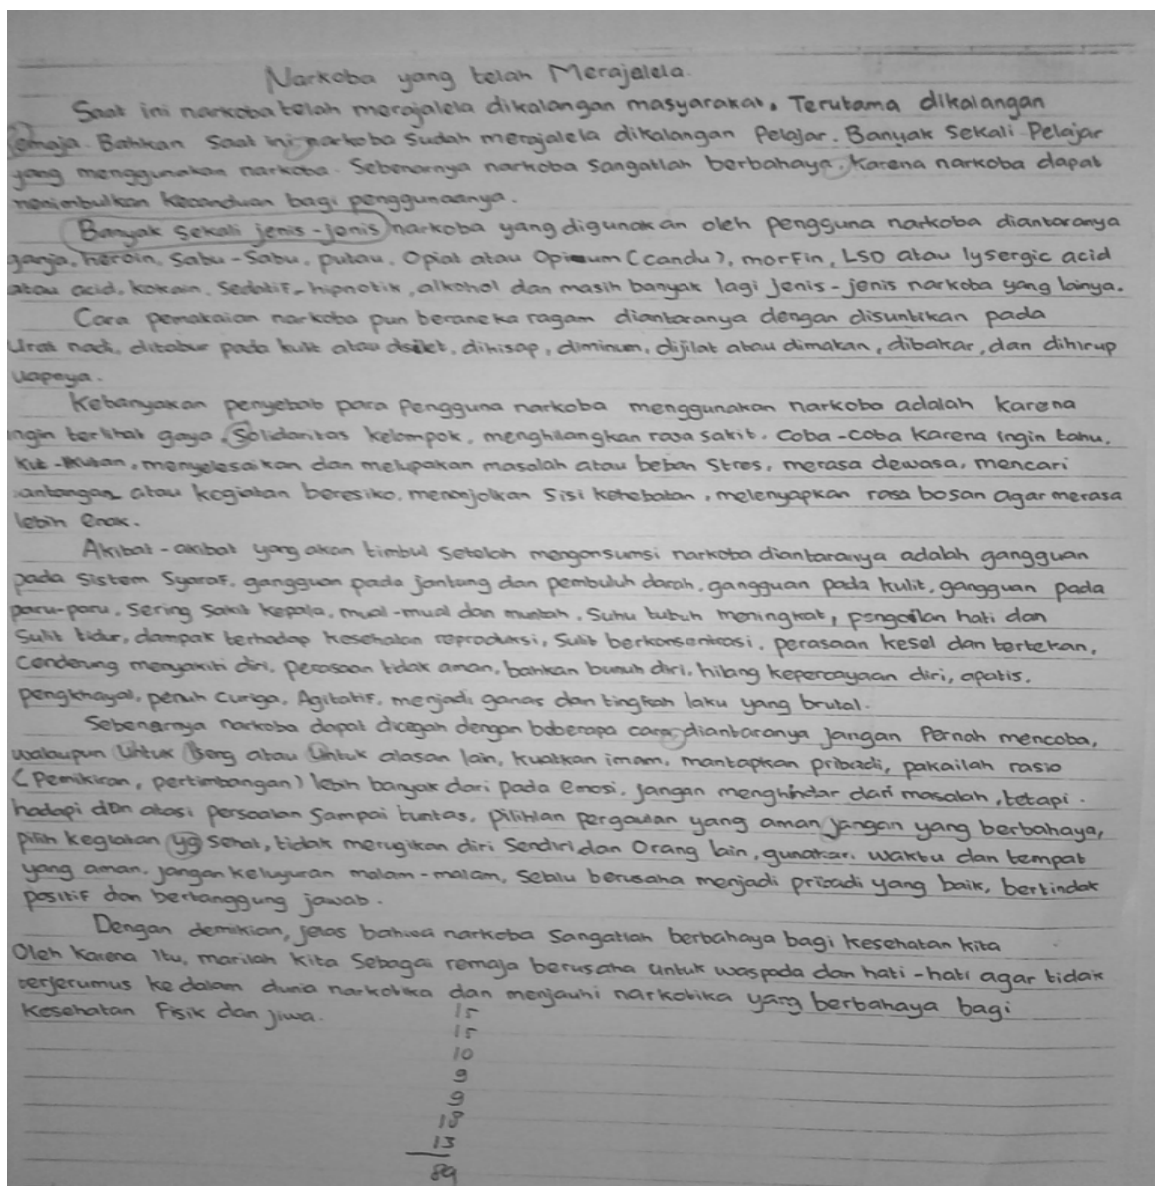 Narkoba yang telah Merajalela.
Saat ini narkoba telah merajalela dikalangan masyarakat. Terutama dikalangan
remaja. Bahkan Saat ini narkoba Sudah merajalela dikalangan Pelajar. Banyak Sekali Pelajar
yang menggunakan narkoba. Sebenarnya narkoba Sangatlah berbahaya. Karena narkoba dapat
menimbulkan kecanduan bagi penggunaanya.
Banyak Sekali jenis-jenis narkoba yang digunakan oleh pengguna narkoba diantaranya
ganja, heroin, Sabu-Sabu, putau, Opiat atau Opium (candu), morfin, LSD atau lysergic acid
atau acid, kokain, Sedatif-hipnotik, alkohol dan masih banyak lagi jenis-jenis narkoba yang lainya.
Cara pemakaian narkoba pun beraneka ragam diantaranya dengan disuntikan pada
Urat nadi, ditabur pada kulit atau disilet, dihisap, diminum, dijilat atau dimakan, dibakar, dan dihirup
uapnya.
Kebanyakan penyebab para Pengguna narkoba menggunakan narkoba adalah karena
ingin terlihat gaya, Solidaritas kelompok, menghilangkan rasa sakit, coba-coba karena ingin tahu,
ikut-ikutan, menyelesaikan dan melupakan masalah atau beban Stres, merasa dewasa, mencari
tantangan atau kegiatan beresiko, menonjolkan Sisi kehebatan, melenyapkan rasa bosan agar merasa
lebih enak.
Akibat-akibat yang akan timbul Setelah mengonsumsi narkoba diantaranya adalah gangguan
pada Sistem Syaraf, gangguan pada jantung dan pembuluh darah, gangguan pada kulit, gangguan pada
paru-paru, Sering Sakit kepala, mual-mual dan muntah, Suhu tubuh meningkat, hati dan
Sulit tidur, dampak terhadap kesehatan reproduksi, Sulit berkonsentrasi, perasaan kesal dan tertekan,
Cenderung menyakiti diri, perasaan tidak aman, bahkan bunuh diri, hilang kepercayaan diri, apatis,
pengkhayal, penuh curiga, Agitatif, menjadi ganas dan tingkah laku yang brutal.
Sebenarnya narkoba dapat dicegah dengan beberapa cara diantaranya jangan Pernah mencoba,
walaupun Untuk Iseng atau Untuk alasan lain, kuatkan imam, mantapkan pribadi, pakailah rasio
(Pemikiran, pertimbangan) lebih banyak dari pada emosi, jangan menghindar dari masalah, tetapi
hadapi dan atasi persoalan Sampai tuntas, pilihlan pergaulan yang aman jangan yang berbahaya,
pilih kegiatan yg Sehat, tidak merugikan diri Sendiri dan Orang lain, gunakan waktu dan tempat
yang aman, jangan keluyuran malam-malam, Selalu berusaha menjadi pribadi yang baik, bertindak
positif dan bertanggung jawab.
Dengan demikian, jelas bahwa narkoba Sangatlah berbahaya bagi kesehatan kita
Oleh Karena Itu, marilah kita Sebagai remaja berusaha untuk waspada dan hati-hati agar tidak
terjerumus kedalam dunia narkotika dan menjauhi narkotika yang berbahaya bagi
Kesehatan Fisik dan jiwa.
15
15
10
9
9
18
13
89